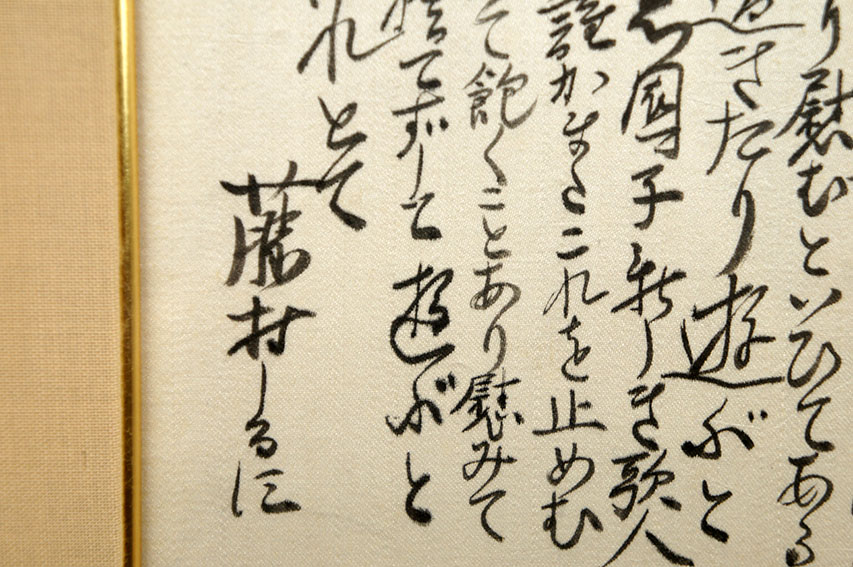 り慰むといひてある
過ぎたり遊ぶと
鳳子新しき歌人
誰かまたこれを止めむ
て飽くことあり慰みて
捨てずして遊ぶと
れとて
藤村しるす